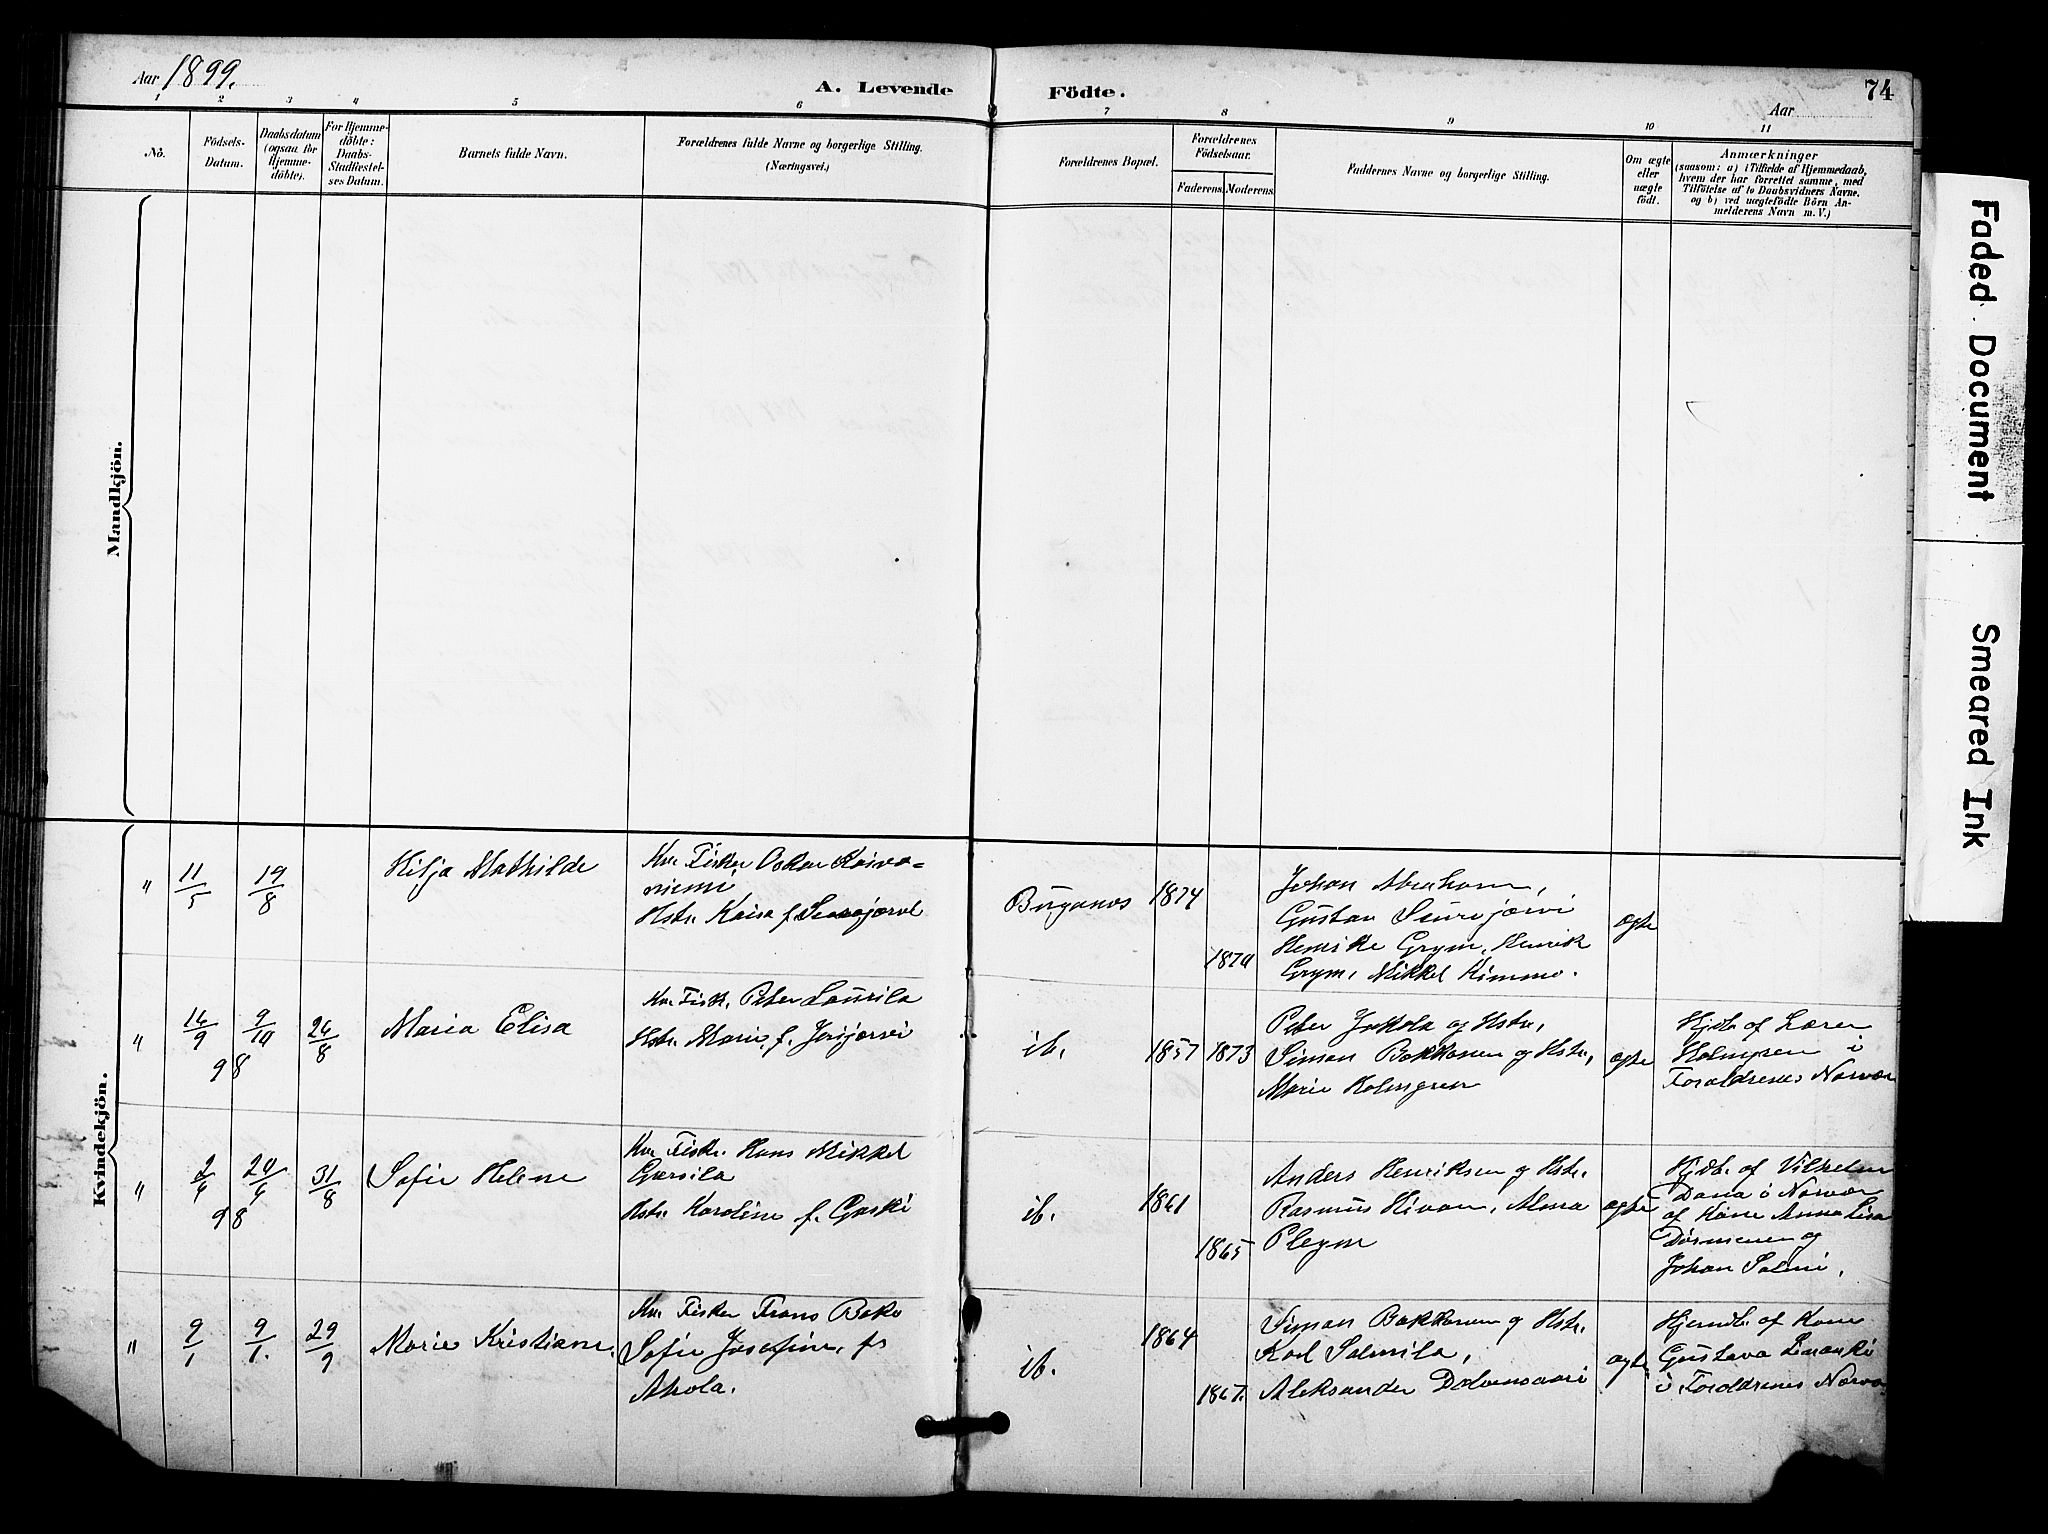 Aar 1899.
A. Levende Födte.
Aar
74
1 2 3 4 5 6 7 8 9 10 11
No.
Födsels-Datum.
Daabsdatum (ogsaa for Hjemmedöbte).
For Hjemmedöbte: Daabs-Stadfæstelses Datum.
Barnets fulde Navn.
Forældrenes fulde Navne og borgerlige Stilling.
(Næringsvei.)
Forældrenes Bopæl.
Forældrenes Födselsaar.
Faderens. Moderens.
Faddernes Navne og borgerlige Stilling.
Om ægte eller uægte födt.
Anmærkninger
(saasom: a) i Tilfælde af Hjemmedaab, hvem der har forrettet samme, med Tilföielse af to Daabsvidners Navne. og b) ved uægtefödte Börn Anmelderens Navn m. V.)
Mandkjön.
Kvindekjön.
" 11/5 19/8
Hilja Mathilde
Kv. Fisker Oskar Koiva=
niemi
Hstr. Kaisa f.
Bugønes 1874
1870
Johan Abraham,
Gustav
Henrik Grym, Mikkel Kimmo.
ægte
" 9/10 98
Maria Elisa
Kv. Fisk. Peter Laurila
Hstr. Marie f.
ib. 1857 1873
Peter Jokola og Hstr.,
Simon Bakkonen og Hstr.,
Marie Holmgren
ægte
Hjdb. af Lærer
Holmgren i
Forældrenes Nærvær
" 31/8 98
Sofie Helene
Kv. Fisker Hans Mikkel
Hstr. Karoline f.
ib. 1861
1865
Anders Henriksen og Hstr.
Rasmus
Plegm
ægte
Hjdb. af Vilhelm
i Nærvær
af Kone Anna Lisa
og
Johan Salmi.
" 9/1 9/1. 29/9
Marie Kristiane.
Kv. Fisker Frans
Sofie Josefine f.
Ahola.
ib. 1864
1867.
Simon Bakkonen og Hstr.
Karl Salmila,
Aleksander
ægte
Hjemdb. af Kone
Gustava
i Forældrenes Nærvær
Faded Document
Smeared Ink